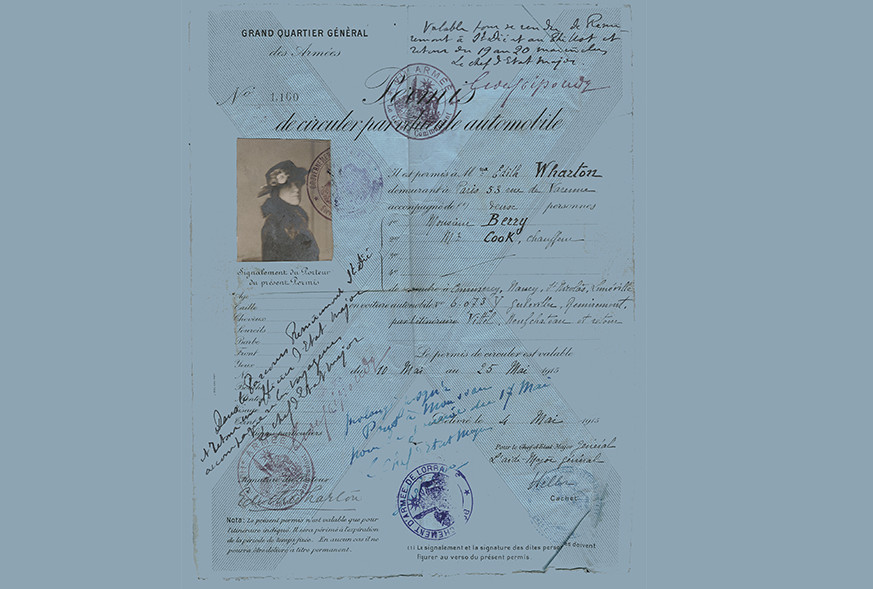 GRAND QUARTIER GÉNÉRAL
des Armées
Valable pour se rendre de Remi-
remont à St Dié et au Thillot et
retour du 19 au 20 mai inclus
Le chef d'Etat Major
N° 1.160
Permis
de circuler par voiture automobile
Il est permis à Mme Edith Wharton
demeurant à Paris 53 rue de Varenne
accompagnée de (1) deux personnes
Monsieur Berry
Mr COOK, chauffeur
de se rendre à Commercy, Nancy, St Nicolas, Lunéville
en voiture automobile N° 6.973 Y Remiremont,
par l'itinéraire Vittel, Neufchateau et retour
Le permis de circuler est valable
du 10 Mai au 25 Mai 1915
Signalement du Porteur
du présent Permis
Age
Taille
Cheveux
Sourcils
Barbe
Front
Yeux
Parcours Remiremont St Dié
et retour Etat Major
accompagnera les voyageurs
Le chef d'Etat Major
prolongé jusqu'à
Pont à Mousson
pour la journée du 17 Mai
Le Chef d'Etat Major
Délivré le 4 Mai 1915
Pour le Chef d'Etat-Major Général
L'aide-Major Général
Cachet
Signature du Porteur
Edith Wharton
DÉTACHEMENT D'ARMÉE DE LORRAINE
Nota: Le présent permis n'est valable que pour
l'itinéraire indiqué. Il sera périmé à l'expiration
de la période de temps fixée. En aucun cas il ne
pourra être délivré à titre permanent.
(1) Le signalement et la signature des dites personnes doivent
figurer au verso du présent permis.